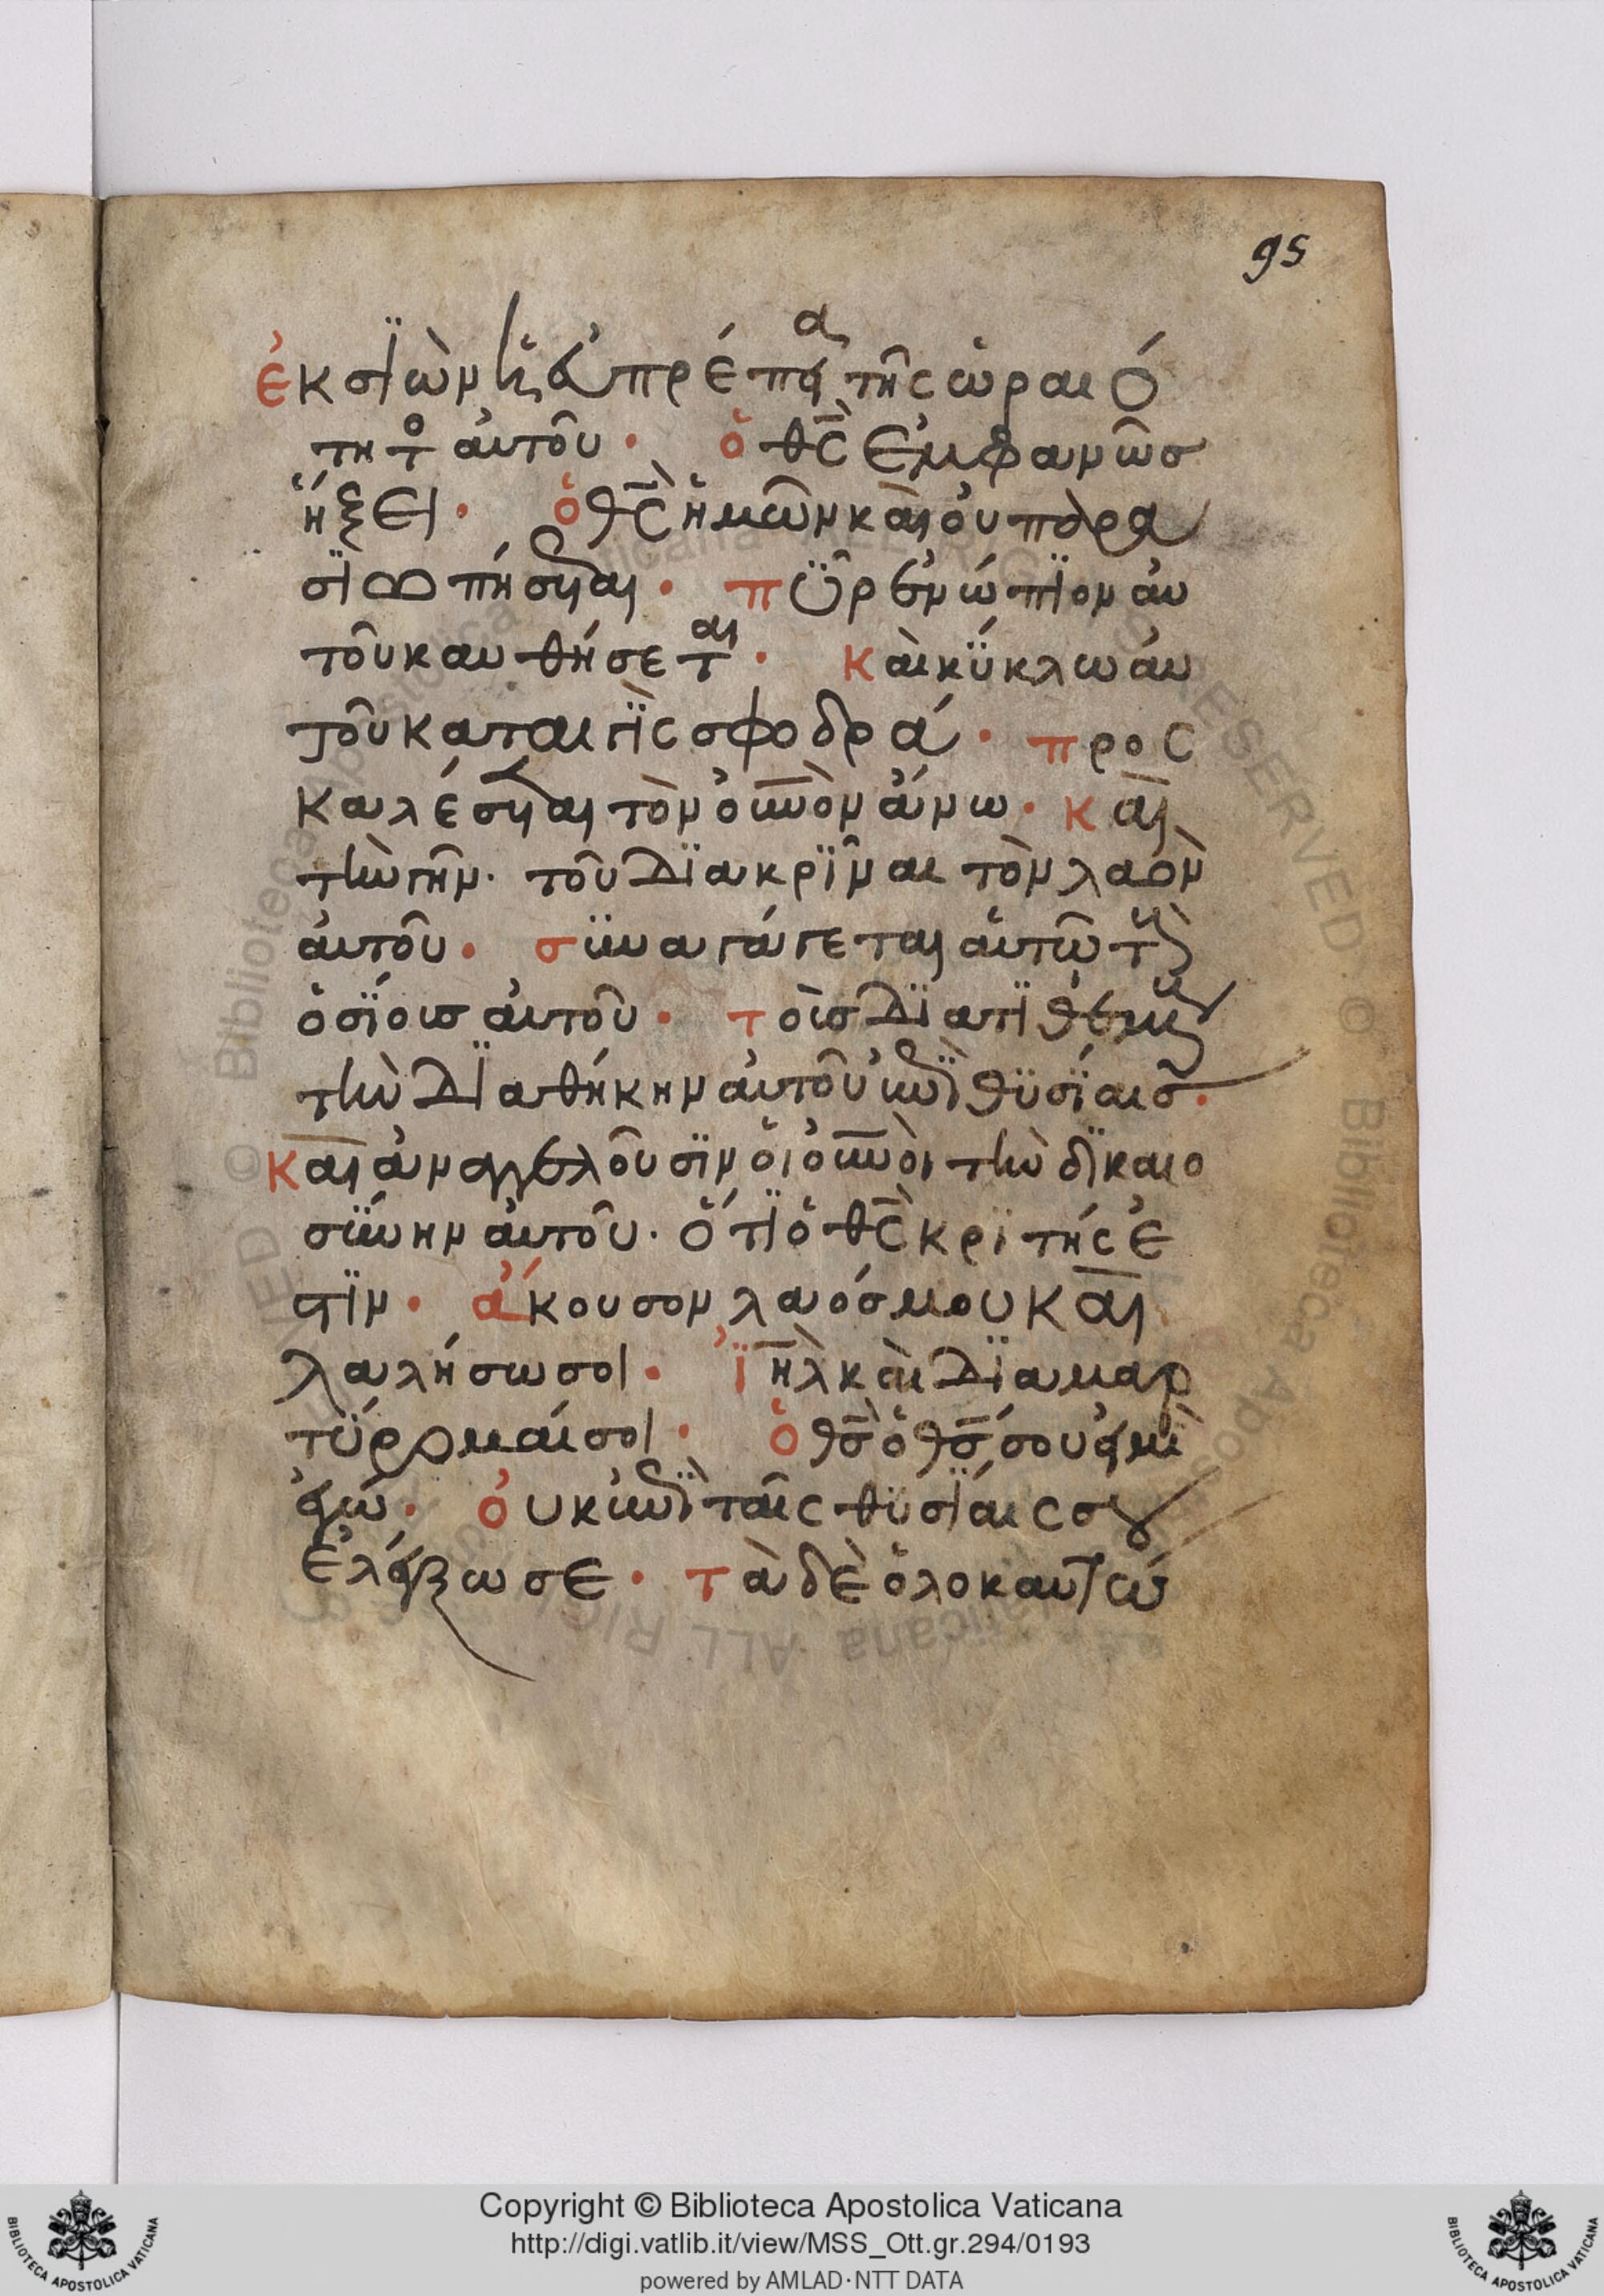 95
ἐκ σϊὼν ἡ ἐυπρέπεια τῆς ὡραιό
τητο ἀυτοῦ · ὁ θς ἐμφανῶσ
ἥξει · ὁ θς ἡμῶν καὶ ὀυ παρα
σϊωπήσηται · πῦρ ἐνώπϊον ἀυ
τοῦ καυθήσεται · Και κύκλω ἀυ
τοῦ καταιγὶς σφοδρά · προς
καλέσηται τὸν ὀυνὸν ἄνω · και
τὴν γῆν · τοῦ Δϊακρῖναι τὸν λαὸν
ἀυτοῦ · συναγάγεται ἀυτῶ τοὺς
ὁσΐοισ ἀυτοῦ · τοὶσ Δϊατϊθεμένους
τὴν Δϊαθήκην ἀυτοῦ ἐπὶ θϋσΐαισ ·
Και ἀναγγελοῦσϊν ὁι ὀυνὸι τὴν δϊκαιο
σύνην ἀυτοῦ · ὅτϊ ὁ θς κρϊτής ἐ
στϊν · ἄκουσον λαόσ μου και
λαλήσω σοι · ϊηλ καὶ Δϊαμαρ
τύρομαί σοι · ὁ θσ ὁ θσ σου ἐιμὶ
ἐγώ · ὀυκ ἐπὶ ταῖς θϋσΐαις σου
ἐλέγξω σε · τὰ δὲ ὁλοκαυτώ
Copyright © Biblioteca Apostolica Vaticana
http://digi.vatlib.it/view/MSS_Ott.gr.294/0193
powered by AMLAD·NTT DATA
BIBLIOTECA APOSTOLICA VATICANA
BIBLIOTECA APOSTOLICA VATICANA